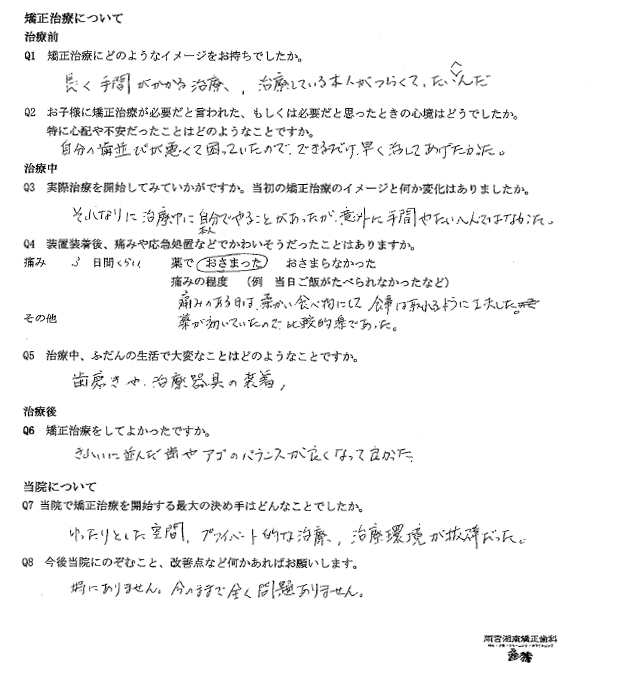 矯正治療について
治療前
Q1　矯正治療にどのようなイメージをお持ちでしたか。
長く手間がかかる治療、、治療している本人がつらくて、たいへんだ
Q2　お子様に矯正治療が必要だと言われた、もしくは必要だと思ったときの心境はどうでしたか。
特に心配や不安だったことはどのようなことですか。
自分の歯並びが悪くて困っていたので、できるだけ早く治してあげたかった。
治療中
Q3　実際治療を開始してみていかがですか。当初の矯正治療のイメージと何か変化はありましたか。
それなりに治療中に自分でやることがあったが、意外に手間やたいへんではなかった。
本人
Q4　装置装着後、痛みや応急処置などでかわいそうだったことはありますか。
痛み　3　日間くらい　薬で　おさまった　おさまらなかった
痛みの程度　（例　当日ご飯がたべられなかったなど）
痛みのある日は、柔かい食べ物にして、食事は取れるように工夫した。
その他　薬が効いていたので比較的楽であった。
Q5　治療中、ふだんの生活で大変なことはどのようなことですか。
歯磨きや、治療器具の装着、
治療後
Q6　矯正治療をしてよかったですか。
きれいに並んだ歯やアゴのバランスが良くなって良かった
当院について
Q7 当院で矯正治療を開始する最大の決め手はどんなことでしたか。
ゆったりとした空間、プライベート的な治療、、治療環境が抜群だった。
Q8　今後当院にのぞむこと、改善点など何かあればお願いします。
特にありません。今のままで全く問題ありません。
雨宮湘南矯正歯科